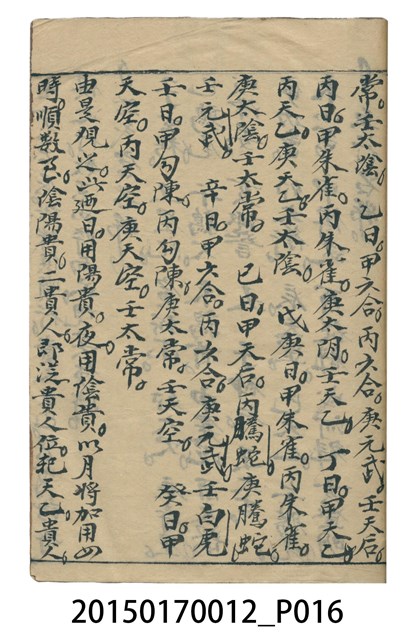 常。壬太陰。乙日。甲六合。丙六合。庚元武。壬天后。
丙日。甲朱雀。丙朱雀。庚太阴。壬天乙。丁日。甲天乙。
丙天乙。庚天乙。壬太陰。戊庚日。甲朱雀。丙朱雀。
庚太陰。壬太常。巳日。甲天后。丙騰蛇。庚騰蛇
壬元武。辛日。甲六合。丙六合。庚元武。壬白虎
壬日。甲勾陳。丙勾陳。庚太常。壬天空。癸日。甲
天空。丙天空。庚天空。壬太常。
由是観之。此廼日用陽貴。夜用陰貴。以月將加用
時。順数至陰陽貴。二貴人。即從貴人位起天乙貴人。
20150170012_P016